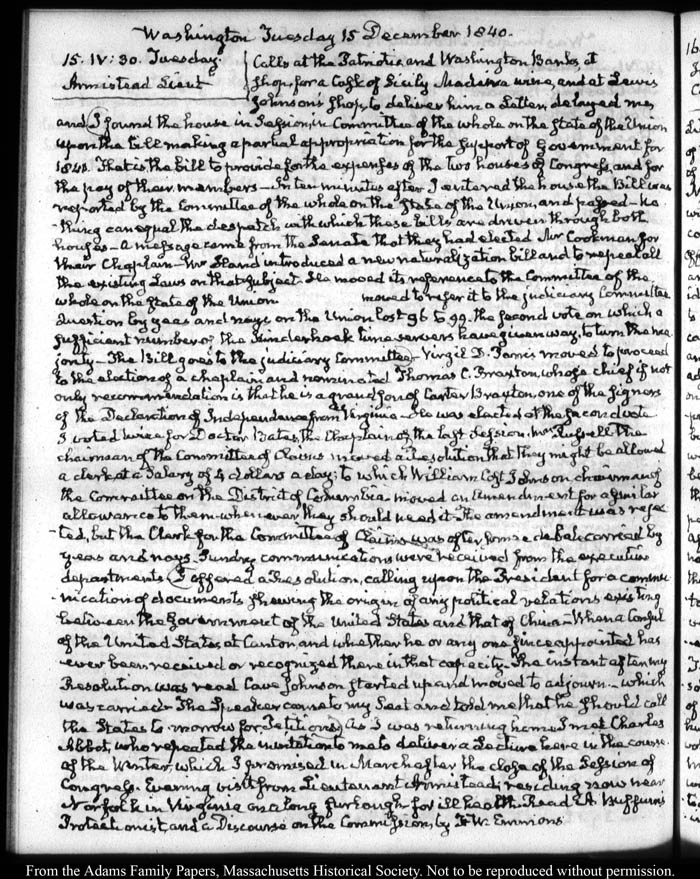 Washington Tuesday 15 December 1840.
15. IV: 30. Tuesday.
Armistead Lieut
Calls at the Patriotic and Washington Banks, at
shop, for a Cask of Sicily Madeira wine, and at Lewis
Johnson's shop, to deliver him a Letter, delayed me,
and I found the house in Session, in Committee of the whole on the State of the Union
upon the bill making a partial appropriation for the support of Government for
1841. That is the bill to provide for the expenses of the two houses of Congress, and for
the pay of their members — In ten minutes after I entered the house the Bill was
reported by the Committee of the whole on the State of the Union, and passed — No
-thing can equal the despatch with which these bills are driven through both
houses — A message came from the Senate that they had elected Mr Cookman for
their Chaplain — Mr Hand introduced a new naturalization bill and to repeal all
the existing Laws on that subject. He moved its reference to the Committee of the
whole on the State of the Union moved to refer it to the judiciary Committee
Question by yeas and nays on the Union lost 96 to 99. the second vote on which a
sufficient number of the Kinderhook time servers have given way, to turn the ma
jority — The Bill goes to the judiciary Committee — Virgil D. Parris moved to proceed
to the election of a chaplain and nominated Thomas C. Braxton, whose chief if not
only recommendation is that he is a grandson of Carter Braxton, one of the signers
of the Declaration of Independence from Virginia — He was elected at the second vote
I voted twice for Doctor Bates, the Chaplain of the last Session. Mr Russell the
chairman of the Committee of Claims moved a Resolution that they might be allowed
a clerk at a Salary of 4 dollars a day; to which William Cost Johnson chairman of
the Committee on the District of Columbia moved an Amendment for a similar
allowance to them whenever they should need it. The amendment was rejec
-ted, but the Clerk for the Committee of Claims was after some debate carried by
yeas and nays. Sundry communications were received from the executive
departments I offered a Resolution, calling upon the President for a commu
-nication of documents shewing the origin of any political relations existing
between the Government of the United States and that of China — When a Consul
of the United States, at Canton and whether he or any one since appointed has
ever been received or recognized there in that capacity — The instant after my
Resolution was read Cave Johnson started up and moved to adjourn — which
was carried — The Speaker came to my Seat and told me that he should call
the States to-morrow for Petitions As I was returning home I met Charles
Abbot, who repeated the invitation to me to deliver a Lecture here in the course
of the Winter, which I promised in March after the close of the Session of
Congress. Evening visit from Lieutenant Armistead; residing now near
Norfolk in Virginia on a long furlough for ill health. Read A. Buffum's
Protectionist, and a Discourse on the Commissions, by F. W. Emmons
From the Adams Family Papers, Massachusetts Historical Society. Not to be reproduced without permission.